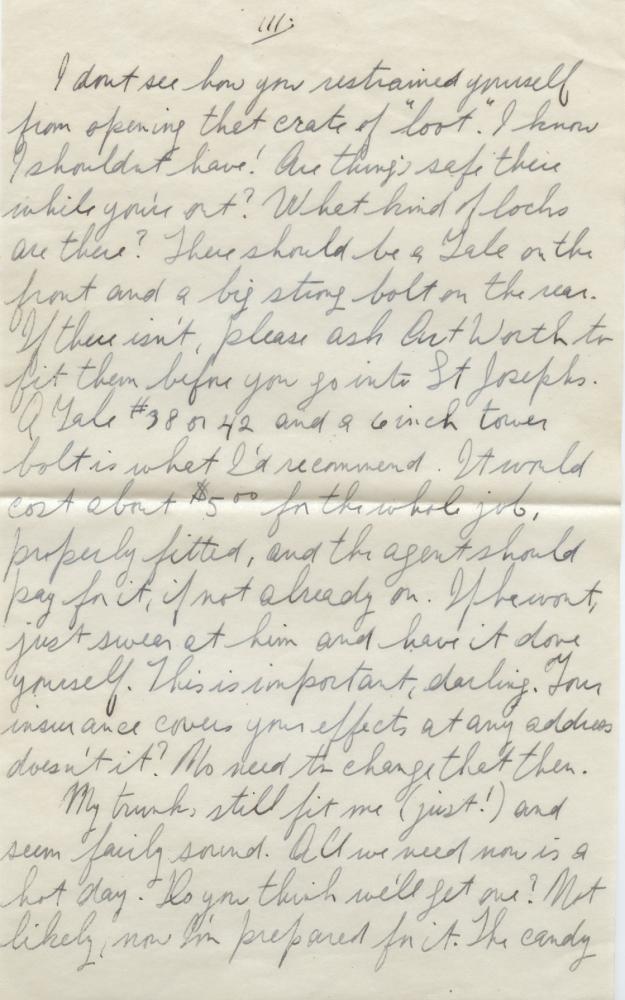 III.
I dont see how you restrained yourself
from opening that crate of "loot." I know
I shouldnt have! Are things safe there
while you're out? What kind of locks
are there? There should be a Yale on the
front and a big strong bolt on the rear.
If there isn't, please ask Art Worth to
fit them before you go into St Josephs.
A Yale #38 or 42 and a 6 inch tower
bolt is what I'd recommend. It would
cost about $5 00 for the whole job,
properly fitted, and the agent should
pay for it, if not already on. If he wont,
just swear at him and have it done
yourself. This is important, darling. Your
insurance covers your effects at any address
doesn't it? No need to change that then.
My trunks still fit me (just!) and
seem fairly sound. All we need now is a
hot day. Do you think we'll get one? Not
likely, now I'm prepared for it. The candy